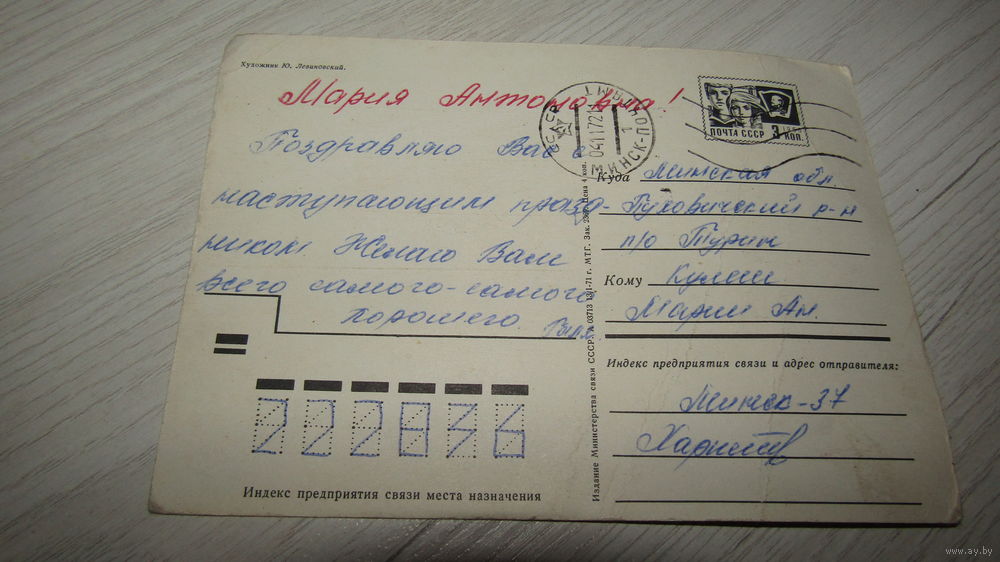 Художник Ю. Левиновский.
Мария Антоновна!
Поздравляю Вас с
наступающим празд-
ником. Желаю Вам
всего самого-самого
хорошего.
ПОЧТА СССР 3 КОП.
СССР
МИНСК-ПОЧТАМТ
Куда Минская обл.
Пуховичский р-н
п/о Турин
Кому Кулеш
Марии Ан.
Индекс предприятия связи и адрес отправителя:
Минск-37
222836
Индекс предприятия связи места назначения
Издание Министерства связи СССР.
71 г. МТГ. Зак. Цена 4 коп.
www.ay.by